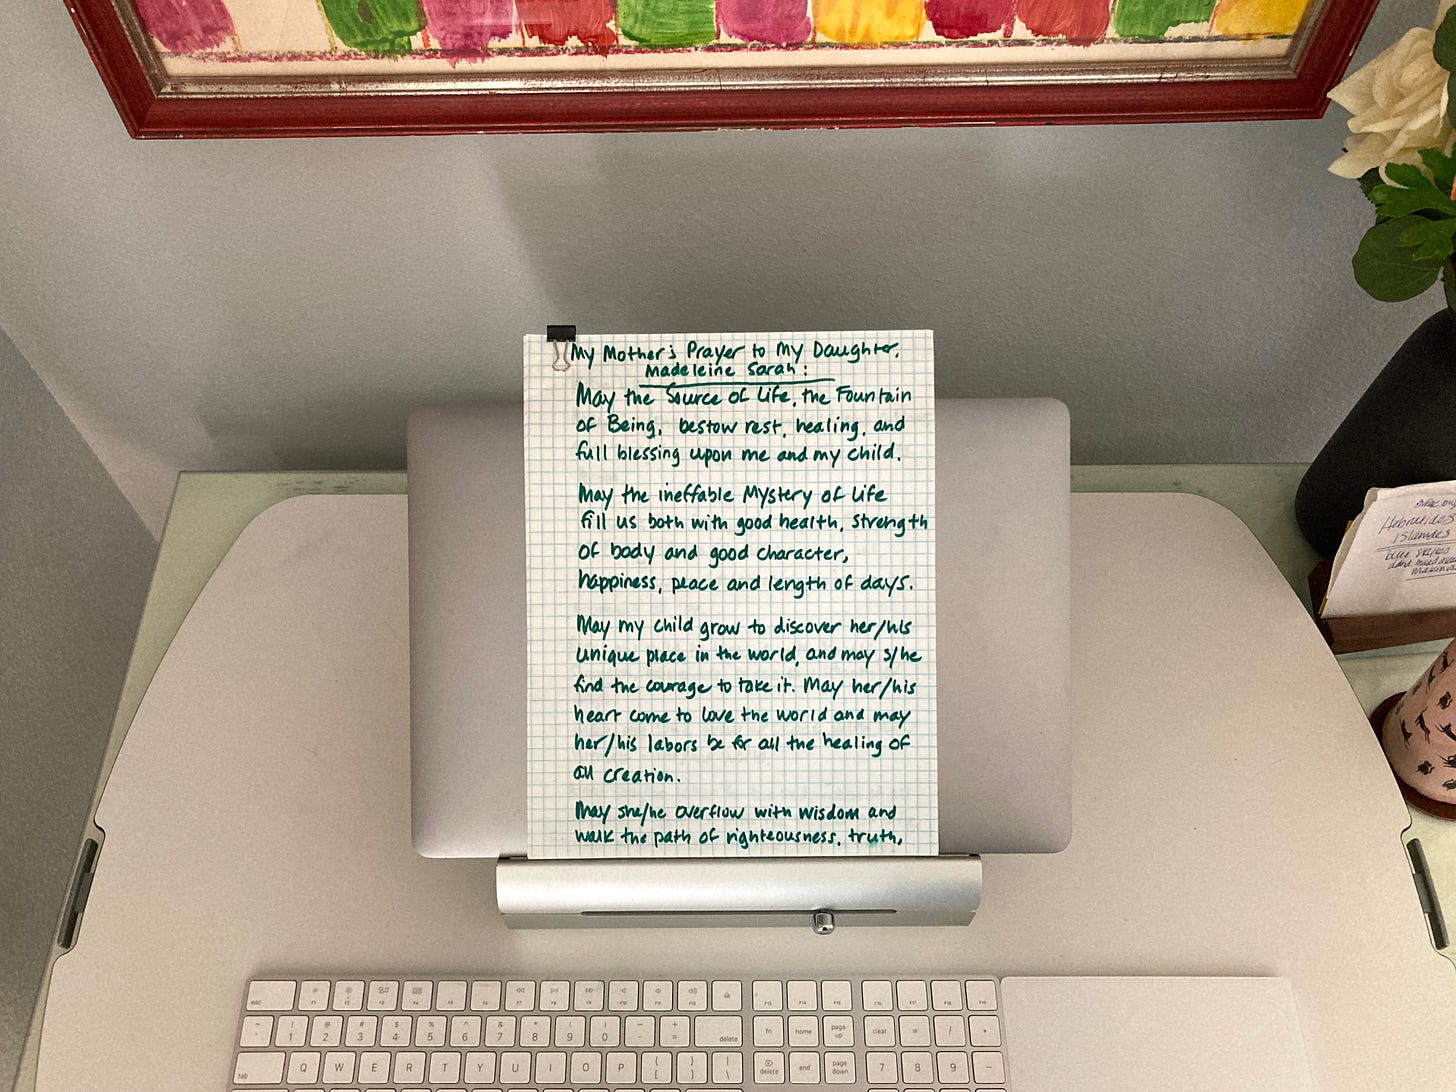 My Mother's Prayer to My Daughter.
Madeleine Sarah:
May the Source of Life, the Fountain
of Being, bestow rest, healing, and
full blessing upon me and my child.
May the ineffable Mystery of Life
fill us both with good health, strength
of body and good character,
happiness, peace and length of days.
May my child grow to discover her/his
unique place in the world, and may s/he
find the courage to take it. May her/his
heart come to love the world and may
her/his labors be for all the healing of
all creation.
May she/he overflow with wisdom and
walk the path of righteousness, truth,
Hebrides
Islands
blue skies
esc F1 F2 F3 F4 F5 F6 F7 F8 F9 F10 F11 F12 F13 F14 F15 F16 F17 F18 F19
~ ! @ # $ % ^ & * ( ) _ +
` 1 2 3 4 5 6 7 8 9 0 - = delete fn home page up clear = / *
tab Q W E R T Y U I O P { [ } ] | \ delete end page down 7 8 9 -